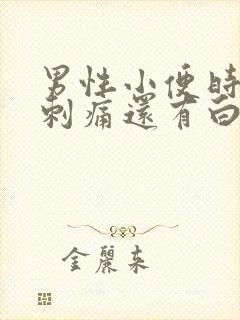 男性小便時
刺痛還有白
金麗來